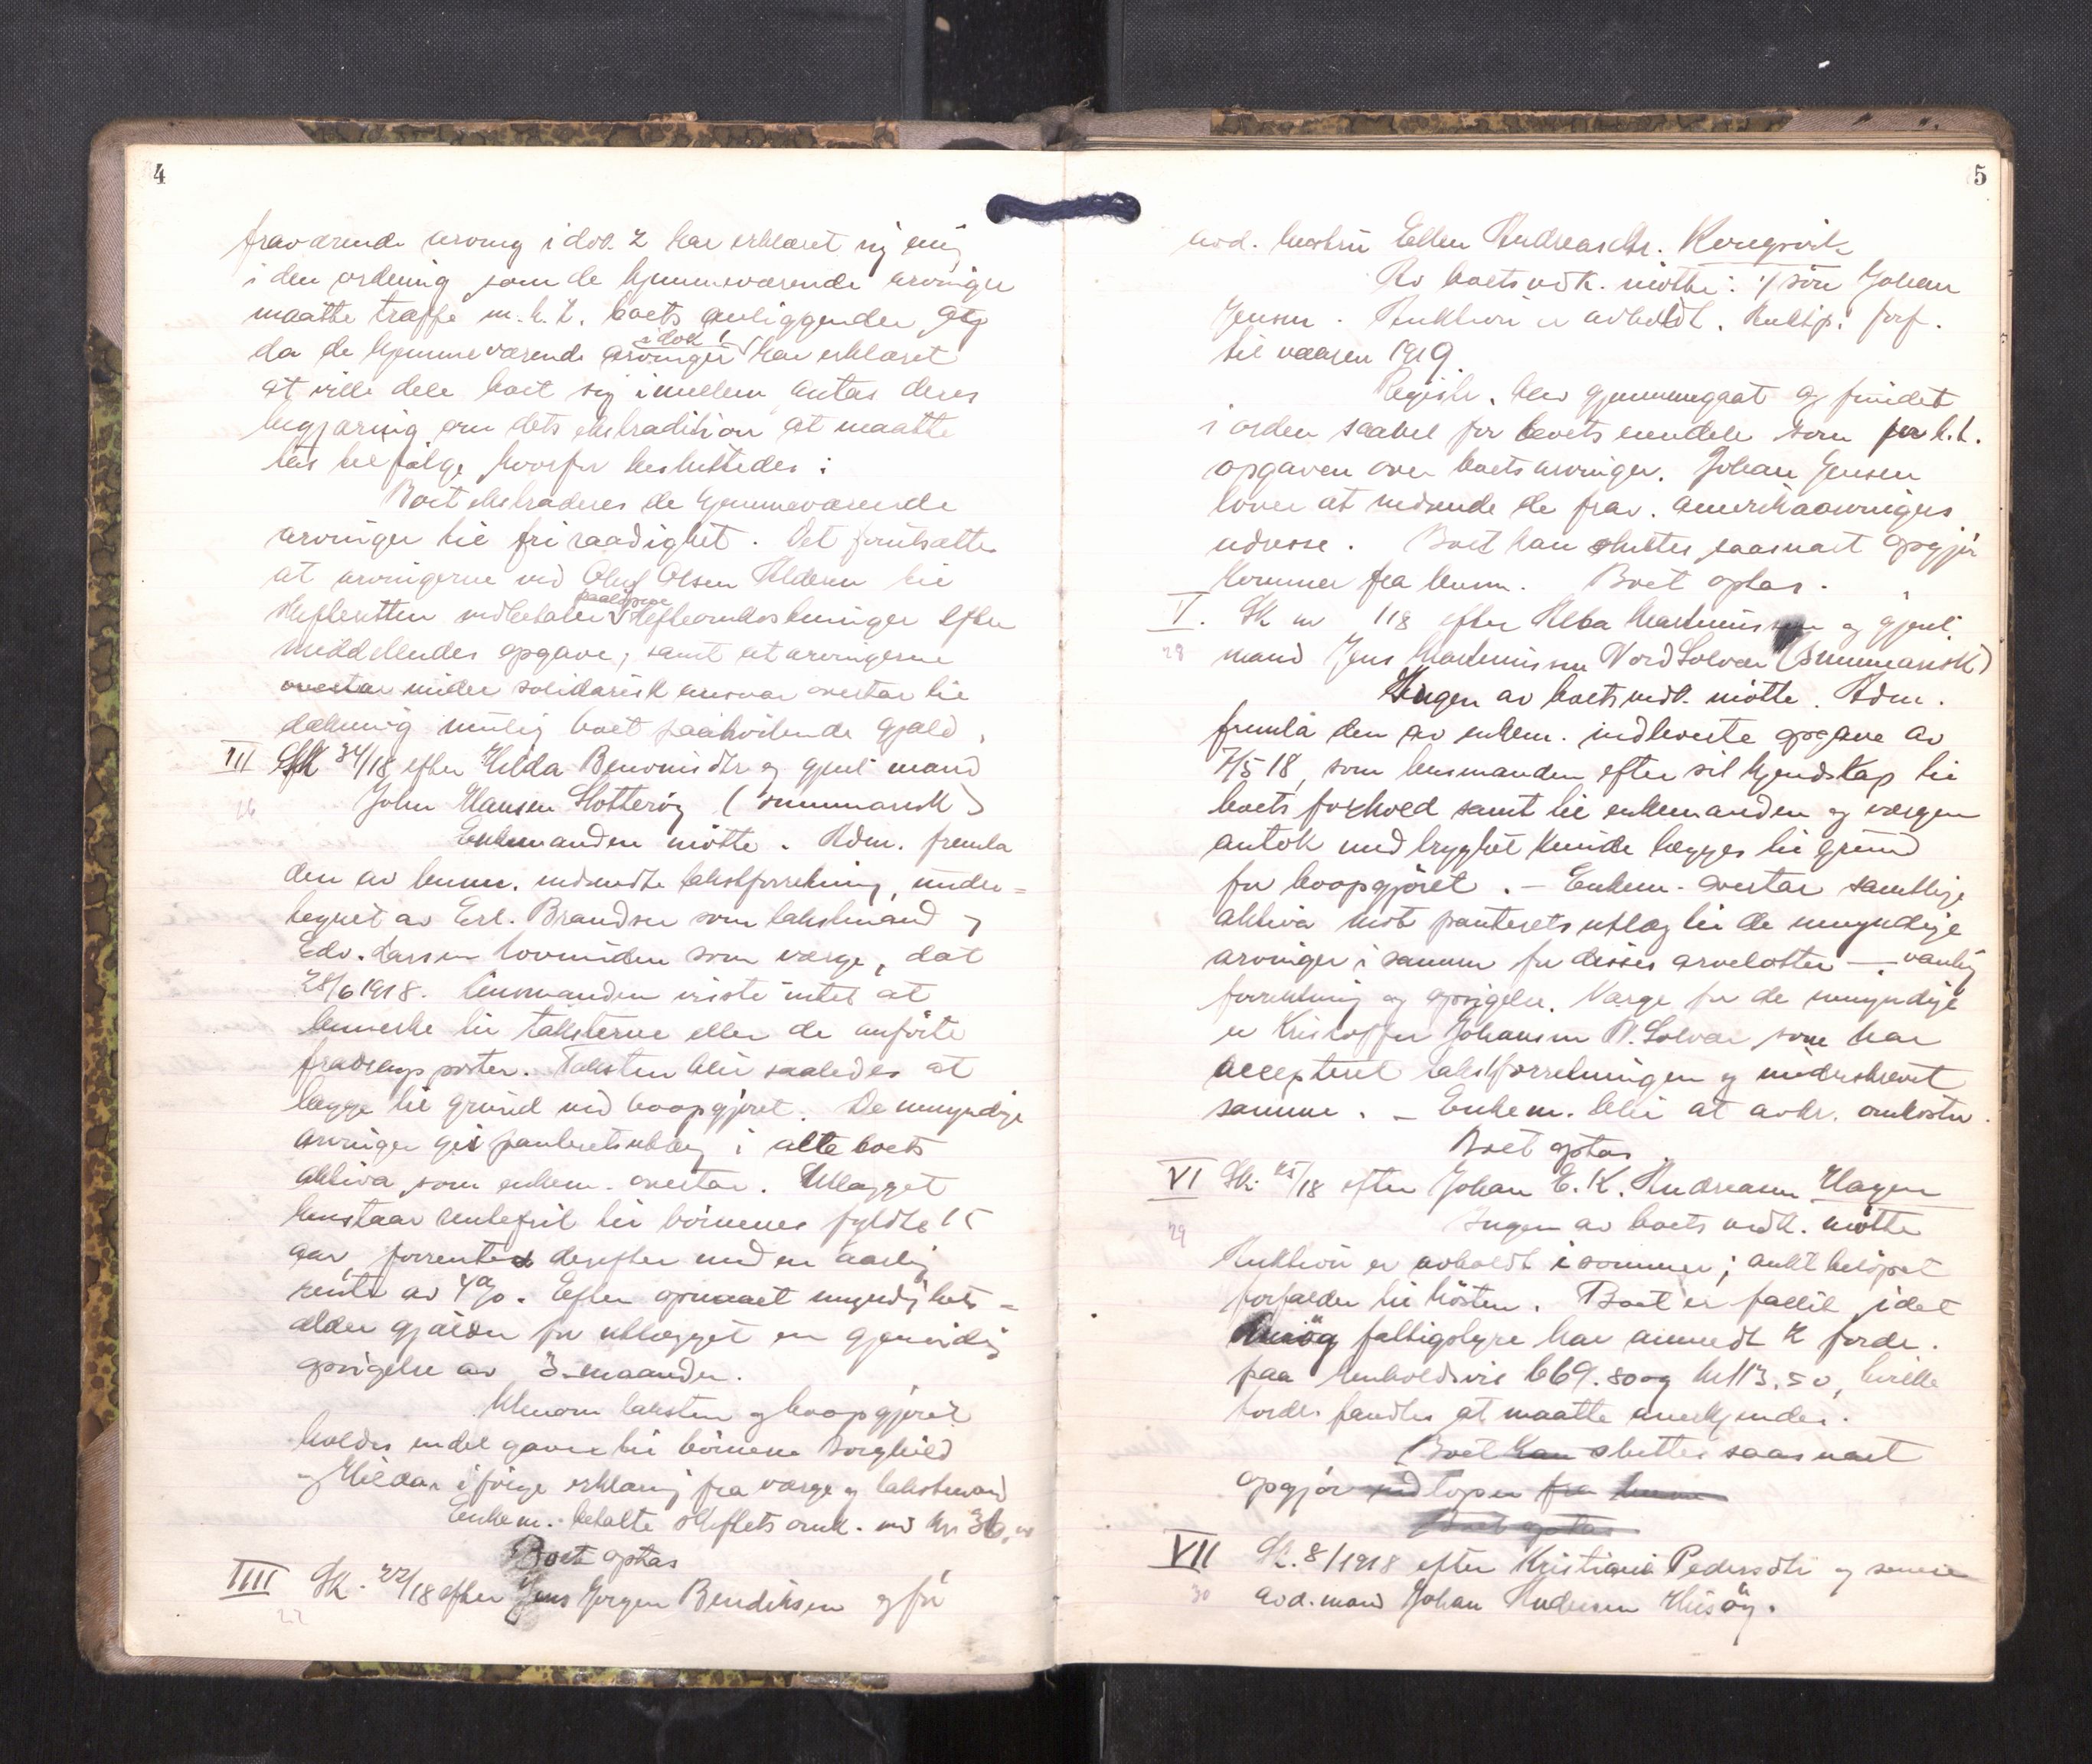 4
fraværende arving i dok. 2 har erklæret sig enig
i den ordning som de hjemmeværende arvinger
maatte træffe m. h. t. boets anliggender og
da de hjemmeværende arvinger i dok 1 har erklæret
at ville dele boet sig imellem antas deres
begjæring om dets ekstradition at maatte
tas tilfølge hvorfor besluttedes:
Boet ekstraderes de hjemmeværende
arvinger til fri raadighet. Det forutsættes
at arvingerne ved Oluf Olsen Alderen til
skifteretten indbetaler paaløpne skifteomkostninger efter
meddelendes opgave, samt at arvingerne
overtar under solidarisk ansvar overtar til
dækning mulig boet paahvilende gjæld.
III Sk 34/18 efter Hilda Benonisdtr og gjenl mand
26 John Hansen Slotterøy (summarisk)
Enkemanden møtte. Adm. fremla
den av lensm. indsendte takstforretning, under-
tegnet av Erl. Brandser som takstmand og
Edv. Larsen Lovunden som værge, dat
28/6 1918. Lensmanden visste intet at
bemerke til taksterne eller de anførte
fradragsposter. Taksten blir saaledes at
lægge til grund ved boopgjøret. De umyndige
arvinger gis panteretsutlæg i alle boets
aktiva som enkem. overtar. Utlægget
henstaar rentefrit til børnenes fyldte 15
aar, forrentes derefter med en aarlig
rente av 4%. Efter opnaaet myndighets-
alder gjælder for utlægget en gjensidig
opsigelse av 3 maaneder.
Utenom taksten og boopgjøret
holdes endel gaver til børnene Borghild
og Hilda ifølge erklæring fra værge og takstmand
Enkem. betalte skiftets omk. med kr 36,00
Boet optas
IIII Sk. 22/18 efter Jens Jørgen Bendiksen og før
27
5
avd. hustru Ellen Andreasdtr. Kongsvik
Av boets vedk. møtte: 1/ søn Johan
Jensen. Auktion er avholdt. Auktsp. forf.
til vaaren 1919.
Registr. blev gjennemgaat og fundet
i orden saavel for boets eiendele som for h.t.
opgaven over boets arvinger. Johan Jensen
lover at indsende de frav. amerikaarvingers
adresse. Boet kan sluttes saasnart opgjør
kommer fra lensm. Boet optas.
V. Sk nr 118 efter Alba Martinussen og gjenl.
28 mand Jens Martinussen Nord Solvær (summarisk)
Ingen av boets vedk. møtte. Adm.
fremla den av enkem. indleverte opgave av
7/5 18, som lensmanden efter sit kjendskap til
boets forhold samt til enkemanden og værgen
antok med tryghet kunde lægges til grund
for boopgjøret. – Enkem. overtar samtlige
aktiva mot panterets utlæg til de umyndige
arvinger i samme for disses arvelotter – vanlig
forrentning og opsigelse. Værge for de umyndige
er Kristoffer Johansen N. Solvær som har
accepteret takstforretningen og underskrevet
samme. – Enkem. blir at avkr. omkostn.
Boet optas.
VI Sk. 45/18 efter Johan E. K. Andreasen Hagen
29 Ingen av boets vedk. møtte
Auktion er avholdt i sommer; auktbeløpet
forfalder til høsten. Boet er fallit idet
Lurøy fattigstyre har anmeldt 2 fordr.
paa henholdsvis 669.80 og kr 113.50, hvilke
fordr. fandtes at maatte anerkjendes.
Boet kan sluttes saasnart
opgjør indløper fra lensm
Boet optas
VII Sk. 8/1918 efter Kristiane Pedersdtr og senere
30 avd. mand Johan Andersen Husøy.